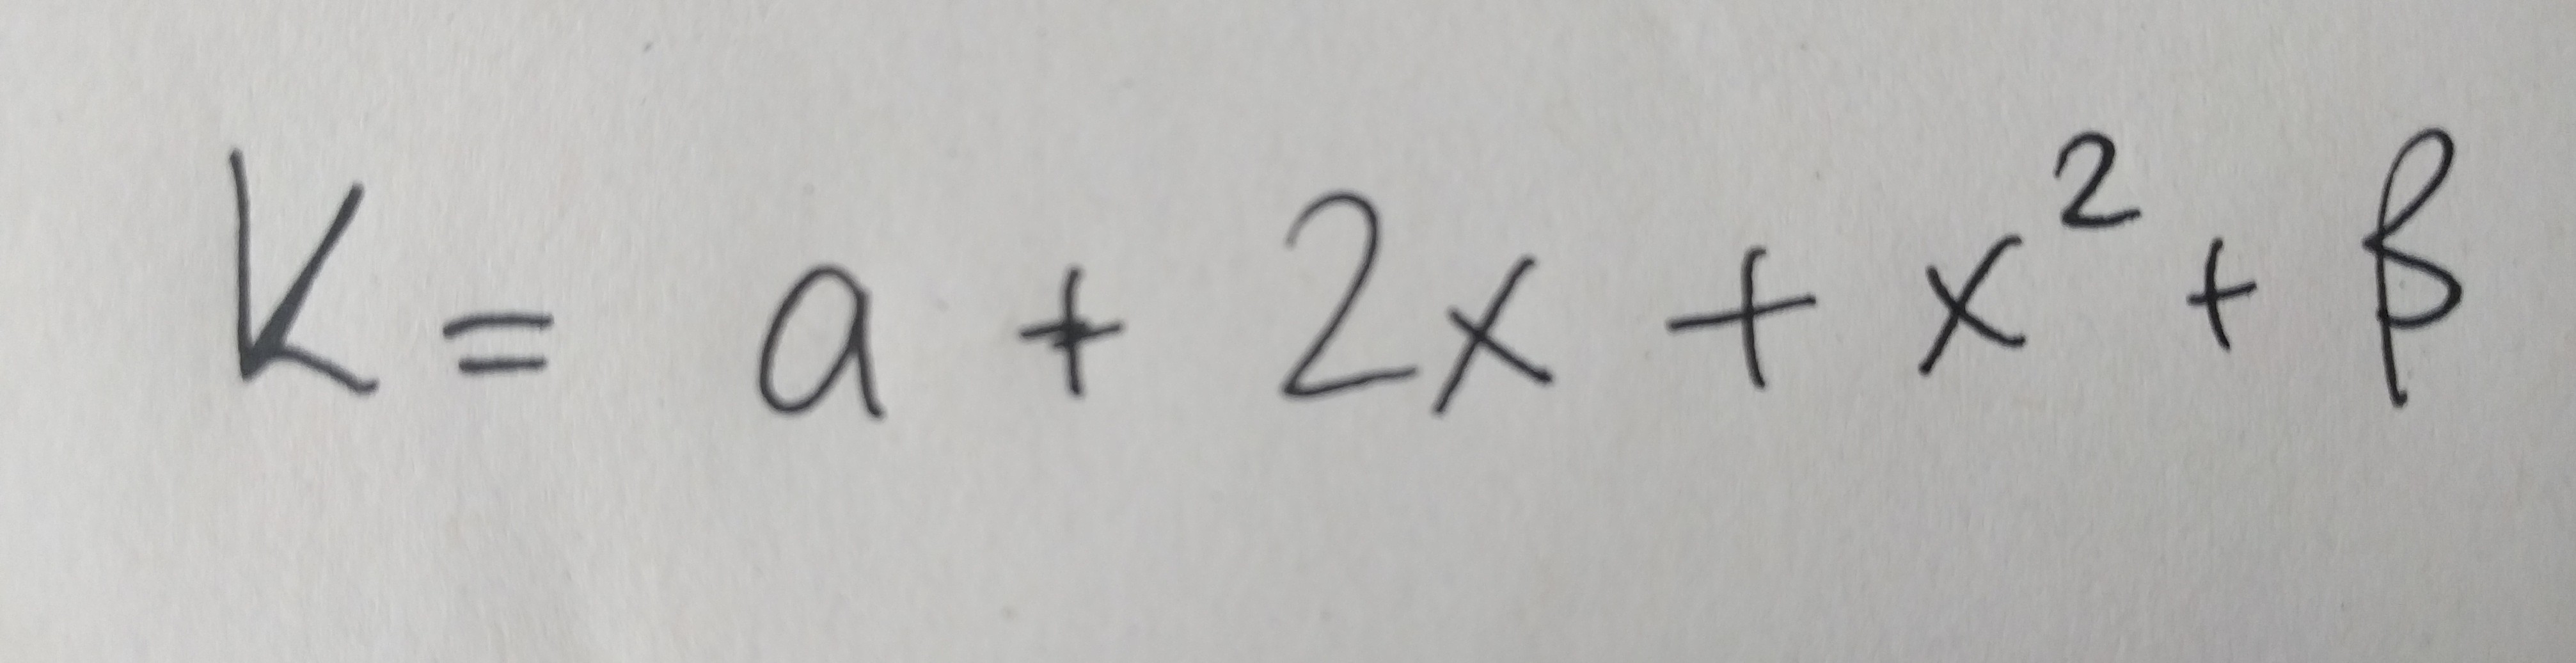 K = a + 2x + x² + β